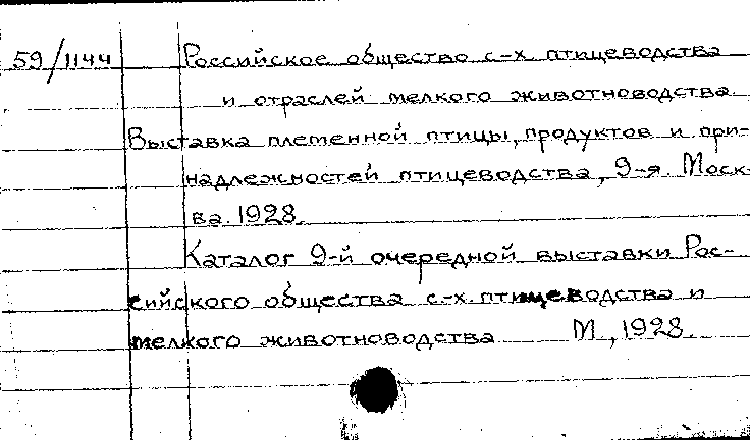 59/1144 Российское общество с-х. птицеводства
и отраслей мелкого животноводства.
Выставка племенной птицы, продуктов и при-
надлежностей птицеводства, 9-я. Моск-
ва. 1928.
Каталог 9-й очередной выставки Рос-
сийского общества с-х. птицеводства и
мелкого животноводства М., 1928.